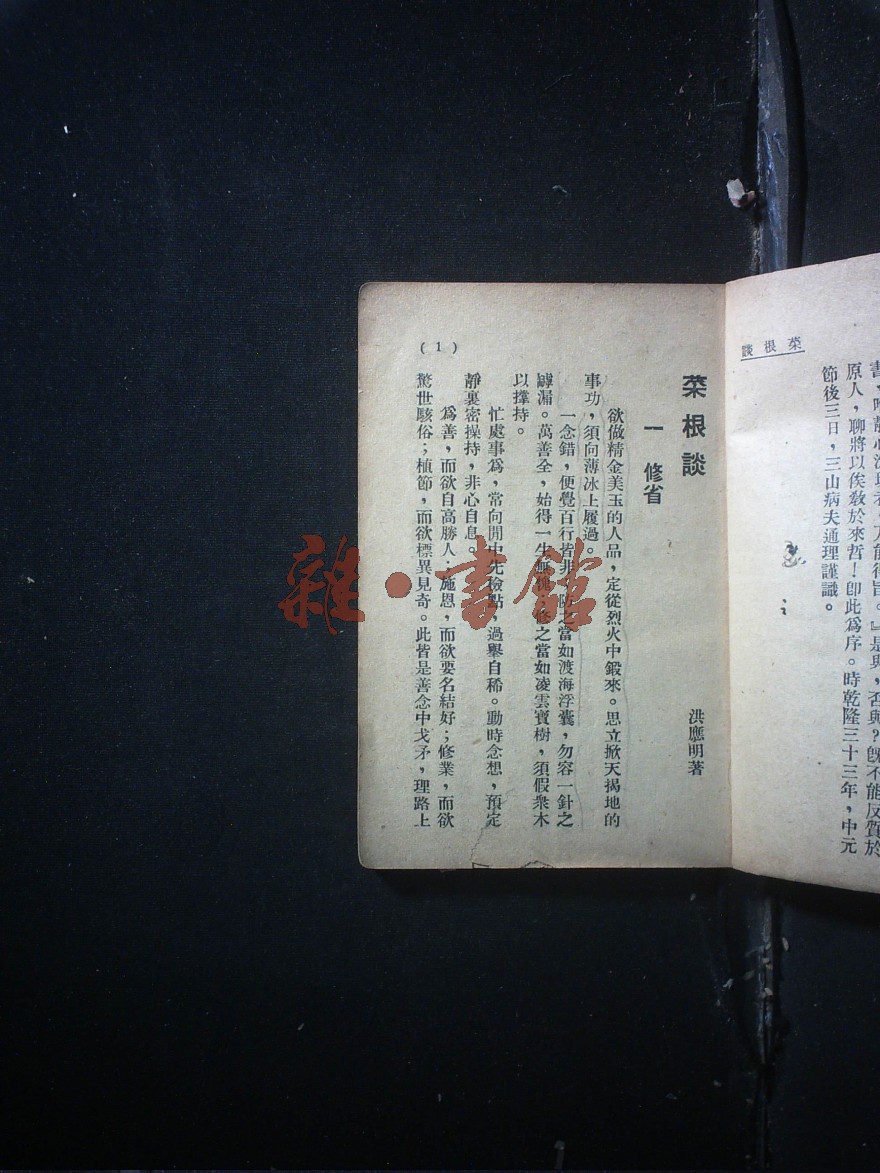 菜根談
能得旨。』是與，否與？旣不能反質於
原人，聊將以俟敎於來哲！卽此爲序。時乾隆三十三年，中元
節後三日，三山病夫通理謹識。
菜根談
洪應明著
一 修省
欲做精金美玉的人品，定從烈火中鍛來。思立掀天揭地的
事功，須向薄冰上履過。
一念錯，便覺百行皆非，防之當如渡海浮囊，勿容一針之
罅漏。萬善全，始得一生無愧；修之當如凌雲寶樹，須假衆木
以撐持。
忙處事爲，常向閒中先檢點，過舉自稀。動時念想，預定
靜裏密操持，非心自息。
爲善，而欲自高勝人；施恩，而欲要名結好；修業，而欲
驚世駭俗；植節，而欲標異見奇。此皆是善念中戈矛，理路上
(1)
雜·書館